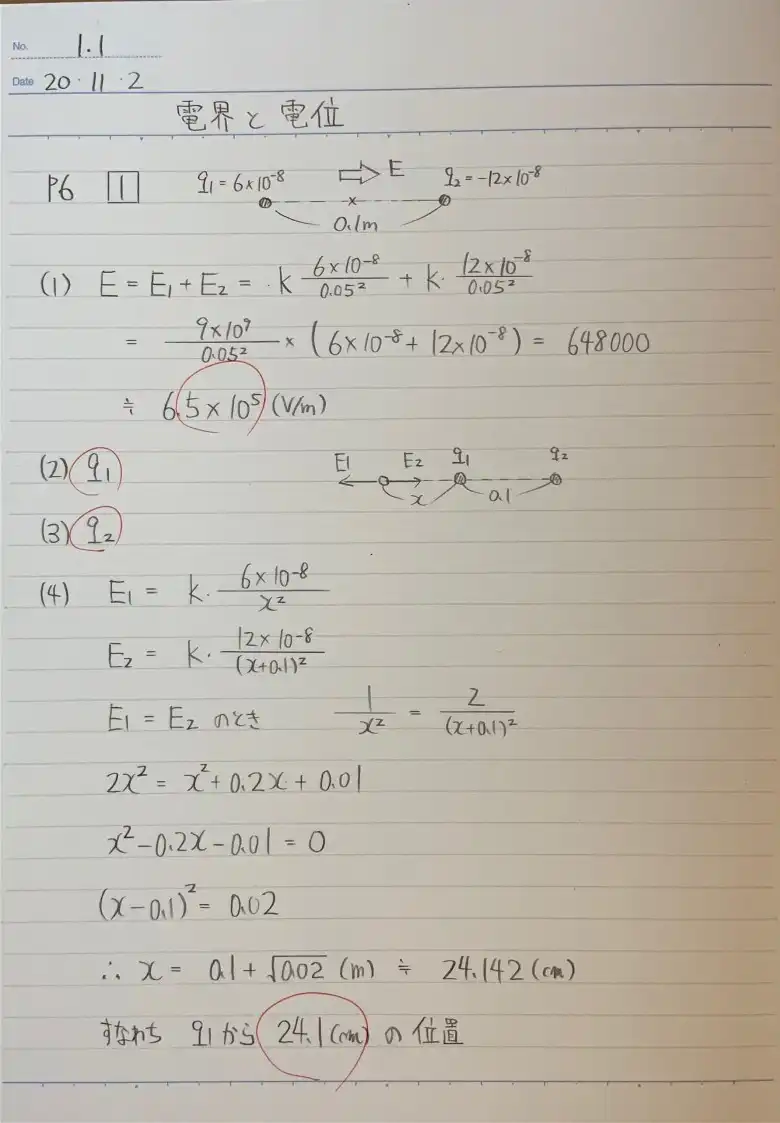 No. 1.1
Date 20・11・2
電界と電位
P6 1 q₁=6×10⁻⁸ ⇨E q₂=-12×10⁻⁸
×
0.1m
(1) E = E₁ + E₂ = ・k 6×10⁻⁸/0.05² + k・12×10⁻⁸/0.05²
= 9×10⁹/0.05² × (6×10⁻⁸+12×10⁻⁸) = 648000
≒ 6.5×10⁵ (V/m)
(2) q₁
E₁ E₂ q₁ q₂
x 0.1
(3) q₂
(4) E₁ = k・6×10⁻⁸/x²
E₂ = k・12×10⁻⁸/(x+0.1)²
E₁ = E₂ のとき 1/x² = 2/(x+0.1)²
2x² = x²+0.2x+0.01
x²-0.2x-0.01 = 0
(x-0.1)² = 0.02
∴ x = 0.1+√0.02 (m) ≒ 24.142 (cm)
すなわち q₁から 24.1(cm) の位置